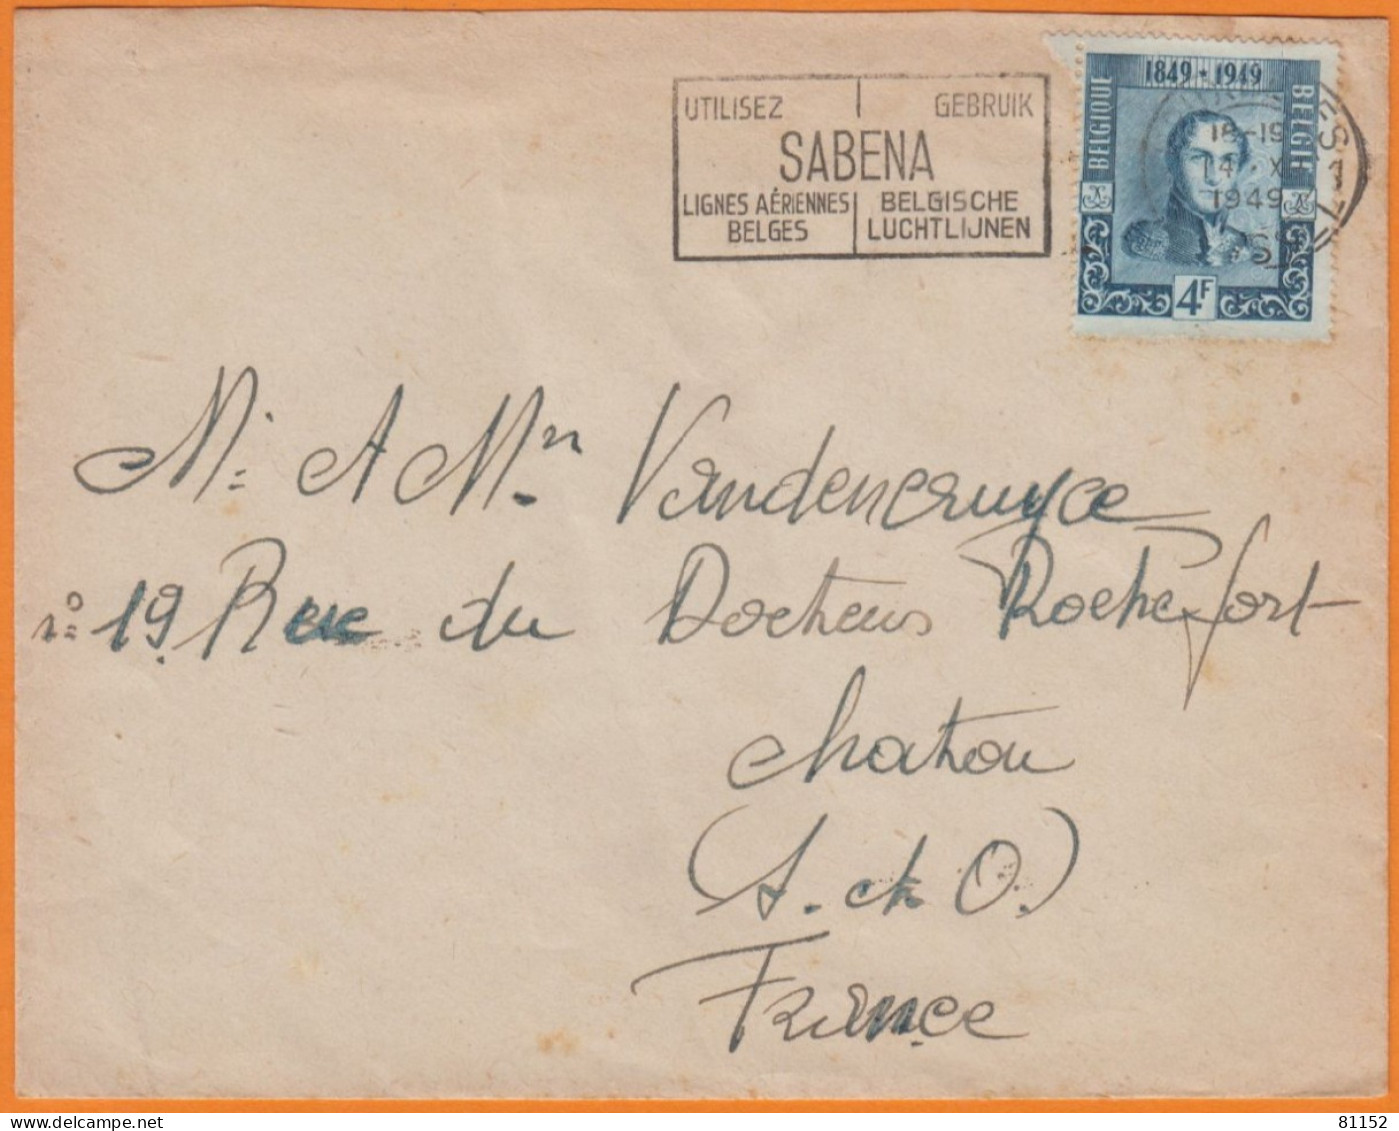 UTILISEZ | GEBRUIK
SABENA
LIGNES AÉRIENNES BELGES | BELGISCHE LUCHTLIJNEN
1849 • 1949
BELGIQUE
BELGIË
18-19
1949
4F
Mr A Mn Vandencruyce
n° 19 Rue du Docteurs Rochefort
Chatou
(S. et O.)
France
81152